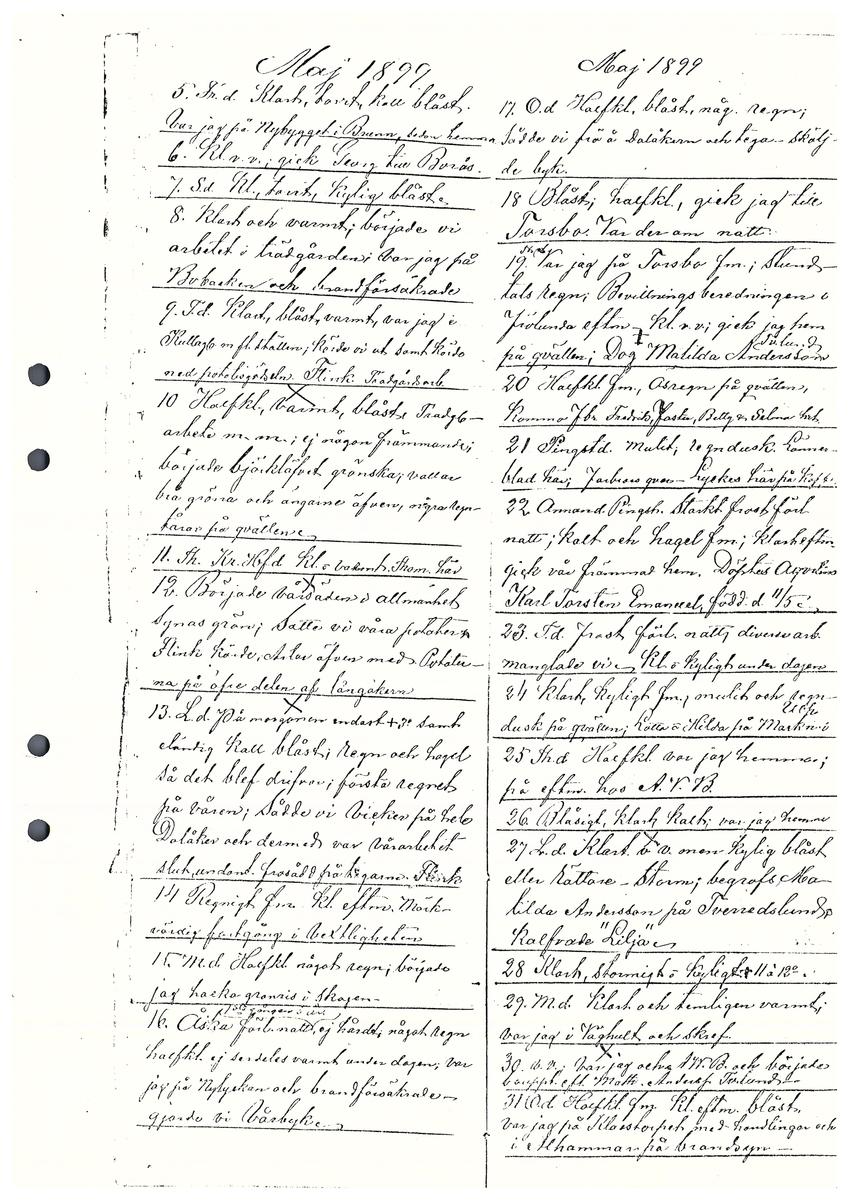 Maj 1899
5. Fr.d. Klart, torrt, kall blåst.
Var jag på Nybygget i Brunn, sedan hemma
6. Kl. v.v.; gick Georg till Borås.
7. Sd Kl., torrt, kylig blåst.
8. Klart och varmt; började vi
arbetet i trädgården; var jag på
Bobacken och brandförsäkrade
9. T.d. Klart, blåst, varmt, var jag i
m fl ställen; körde vi ut samt körde
ned potatisgödseln. Flink Trädgårdsarb.
10 Halfkl., varmt, blåst. Trädg-
arbete m.m.; ej någon främmande;
började björklöfvet grönska; vallar
bra gröna och ängarne äfven, några regn-
tårar på qvällen.
11. Th. Kr. Hfd Kl. o varmt. Thom. här
12. Började vårsäden i allmänhet
synas grön; satte vi våra potatis
Flink körde, äfven med Potater-
na på öfre delen af långåkern
13. L.d. På morgonen endast +3° samt
eländig kall blåst; regn och hagel
så det blef drifvor; första regnet
på våren; sådde vi vicker på hela
Dalåker och dermed var vårarbetet
slut, undant. frösådd på tegarne. Flink
14 Regnigt fm. kl. eftm. Märk-
värdig fortgång i vextligheten
15. M.d. Halfkl. något regn; började
jag hacka granris i skogen
16. Åska förl. natt, ej hårdt; något regn
halfkl. ej serdeles varmt under dagen; var
jag på Nylyckan och brandförsäkrade
gjorde vi Vårbyke.
Maj 1899
17. O.d Halfkl., blåst, någ. regn;
sådde vi frö å Dalåkern och tega - skölj-
de byk.
18 Blåst; halfkl., gick jag till
Torsbo. Var der om natt.
19. Var jag på Torsbo fm.; stund-
tals regn; Bevillningsberedningen i
eftm. kl. v.v; gick jag hem
på qvällen; Dog Matilda Andersson
20 Halfkl. fm., åsregn på qvällen,
Komma Fbr. Fredrik, faster, Betty o Selma hit.
21 Pingstd. Mulit, regndusk.
blad här;
22 Annand. Pingst. Starkt frost förl.
natt; kalt och hagel fm.; klart eftm.
gick vår främmad hem. Döptes
Karl Torsten Emanuel, född d. 11/5
23. T.d. Frost förl. natt; diverse arb.
manglade vi. Kl. o kyligt under dagen
24 Klart, kyligt fm.; mulit och regn-
dusk på qvällen; Lotta o Hilda på Markn. i
25 Th.d Halfkl. var jag hemma;
på eftm. hos A.V.B.
26. Blåsigt, klart, kalt; var jag hemma
27 L.d. Klart o v. men kylig blåst
eller rättare - storm; begrofs Ma-
tilda Andersson på Tvärredslund.
Kalfvade "Lilja"
28 Klart, stormigt o kyligt 11 à 12°
29. M.d. Klart och temligen varmt;
var jag i Vaghult och skref.
30. v.v; var jag och W.B. och började
bouppt. eft. Math. Anders.
31 O.d Halfkl. fm. kl. eftm. blåst.
var jag på Klaestorpet med handlingar och
i Alhammar på brandsyn